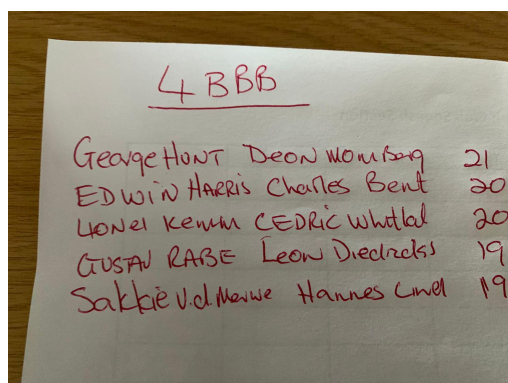 4 BBB
George HUNT DEON Momberg 21
EDWIN HARRIS Charles Bent 20
LIONEL Kemm CEDRIC 20
GUSTAV RABE Leon 19
Sakkie v.d Merwe Hannes 19